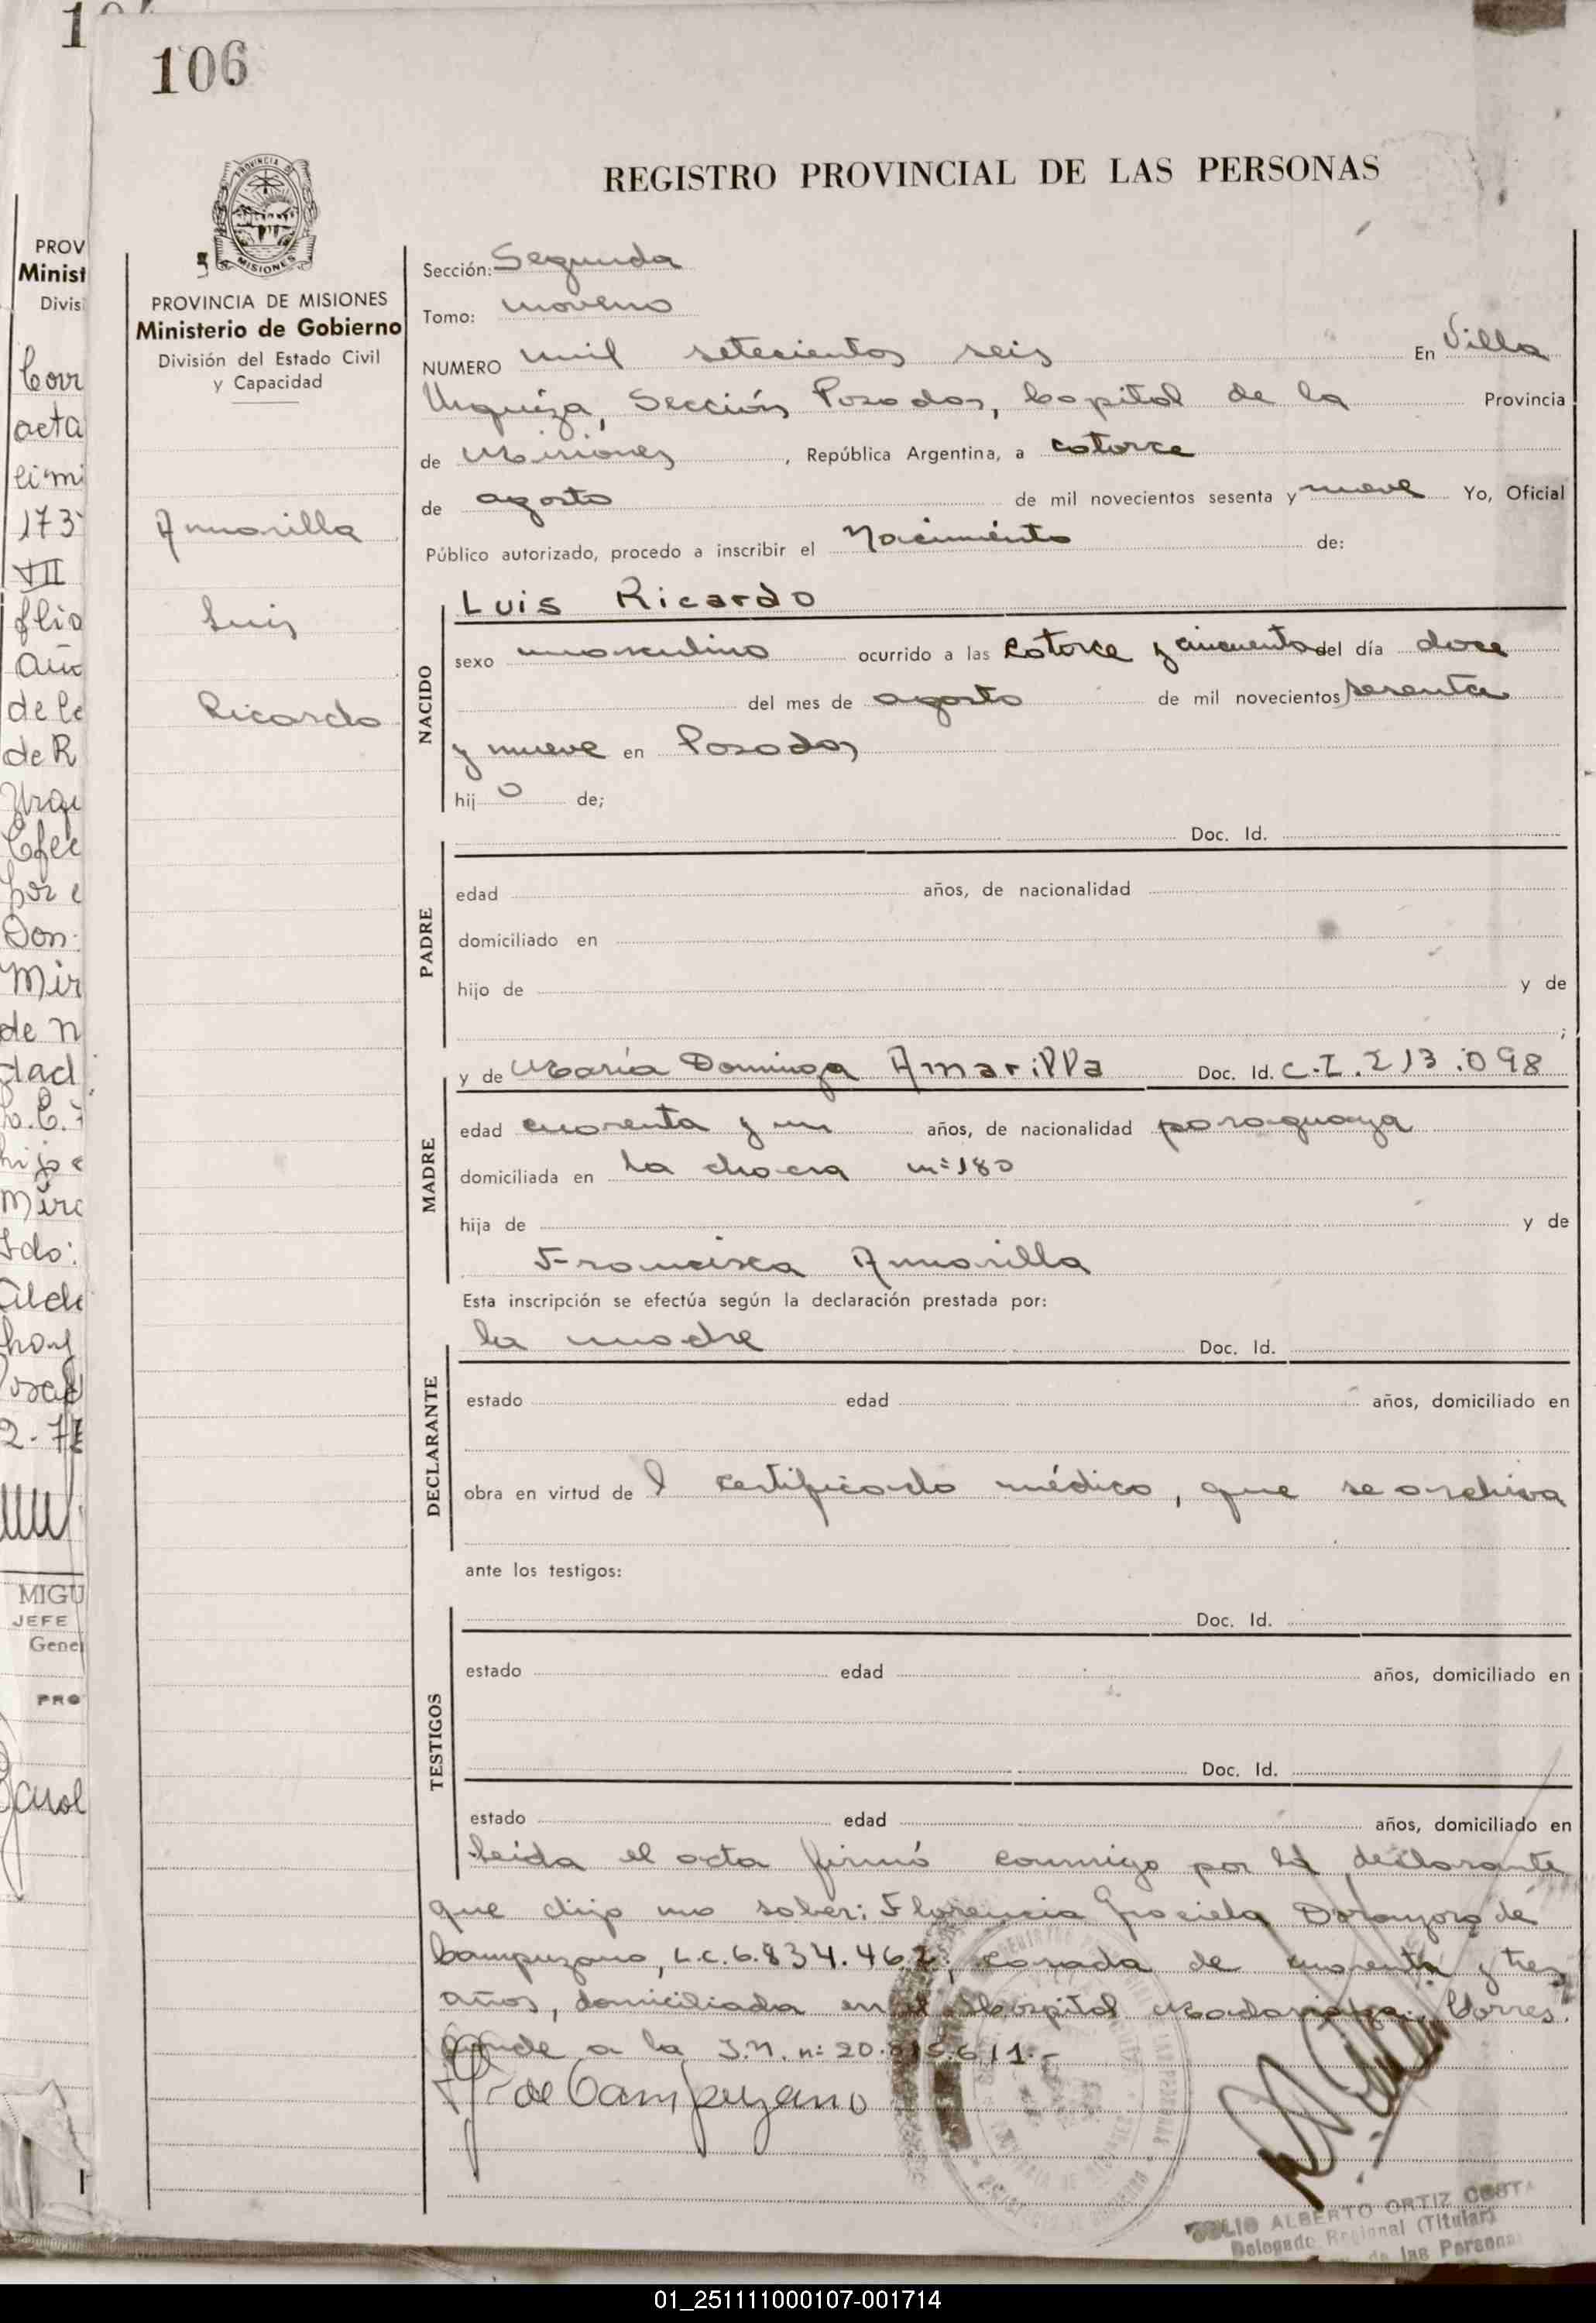 106
REGISTRO PROVINCIAL DE LAS PERSONAS
PROVINCIA
MISIONES
PROVINCIA DE MISIONES
Ministerio de Gobierno
División del Estado Civil
y Capacidad
Amarilla
Luis
Ricardo
Sección: Segunda
Tomo: noveno
NUMERO mil setecientos seis En Villa
Urquiza, Sección Posadas, Capital de la Provincia
de Misiones, República Argentina, a catorce
de agosto de mil novecientos sesenta y nueve Yo, Oficial
Público autorizado, procedo a inscribir el Nacimiento de:
NACIDO
Luis Ricardo
sexo masculino ocurrido a las catorce y cincuenta del día doce
del mes de agosto de mil novecientos sesenta
y nueve en Posadas
hij o de;
PADRE
Doc. Id.
edad años, de nacionalidad
domiciliado en
hijo de y de
;
MADRE
y de María Dominga Amarilla Doc. Id. C.I. 213.098
edad cuarenta y un años, de nacionalidad paraguaya
domiciliada en la chacra nº 180
hija de y de
Francisca Amarilla
Esta inscripción se efectúa según la declaración prestada por:
DECLARANTE
la madre Doc. Id.
estado edad años, domiciliado en
obra en virtud de l certificado médico, que se archiva
ante los testigos:
TESTIGOS
Doc. Id.
estado edad años, domiciliado en
Doc. Id.
estado edad años, domiciliado en
leída el acta firmó conmigo por la declarante
que dijo no saber: Florencia Graciela de
Campuzano, L.C. 6.834.462, casada de cuarenta y tres
años, domiciliada en el Hospital Madariaga. Corres
ponde a la I.N. nº 20.615.611.-
de Campuzano
JULIO ALBERTO ORTIZ COSTA
Delegado Regional (Titular)
de las Personas
PROV
Minist
Divis
acta
173
VII
año
de R
Don
Mir
de n
dad
MIGU
JEFE
Gene
PRO
01_251111000107-001714